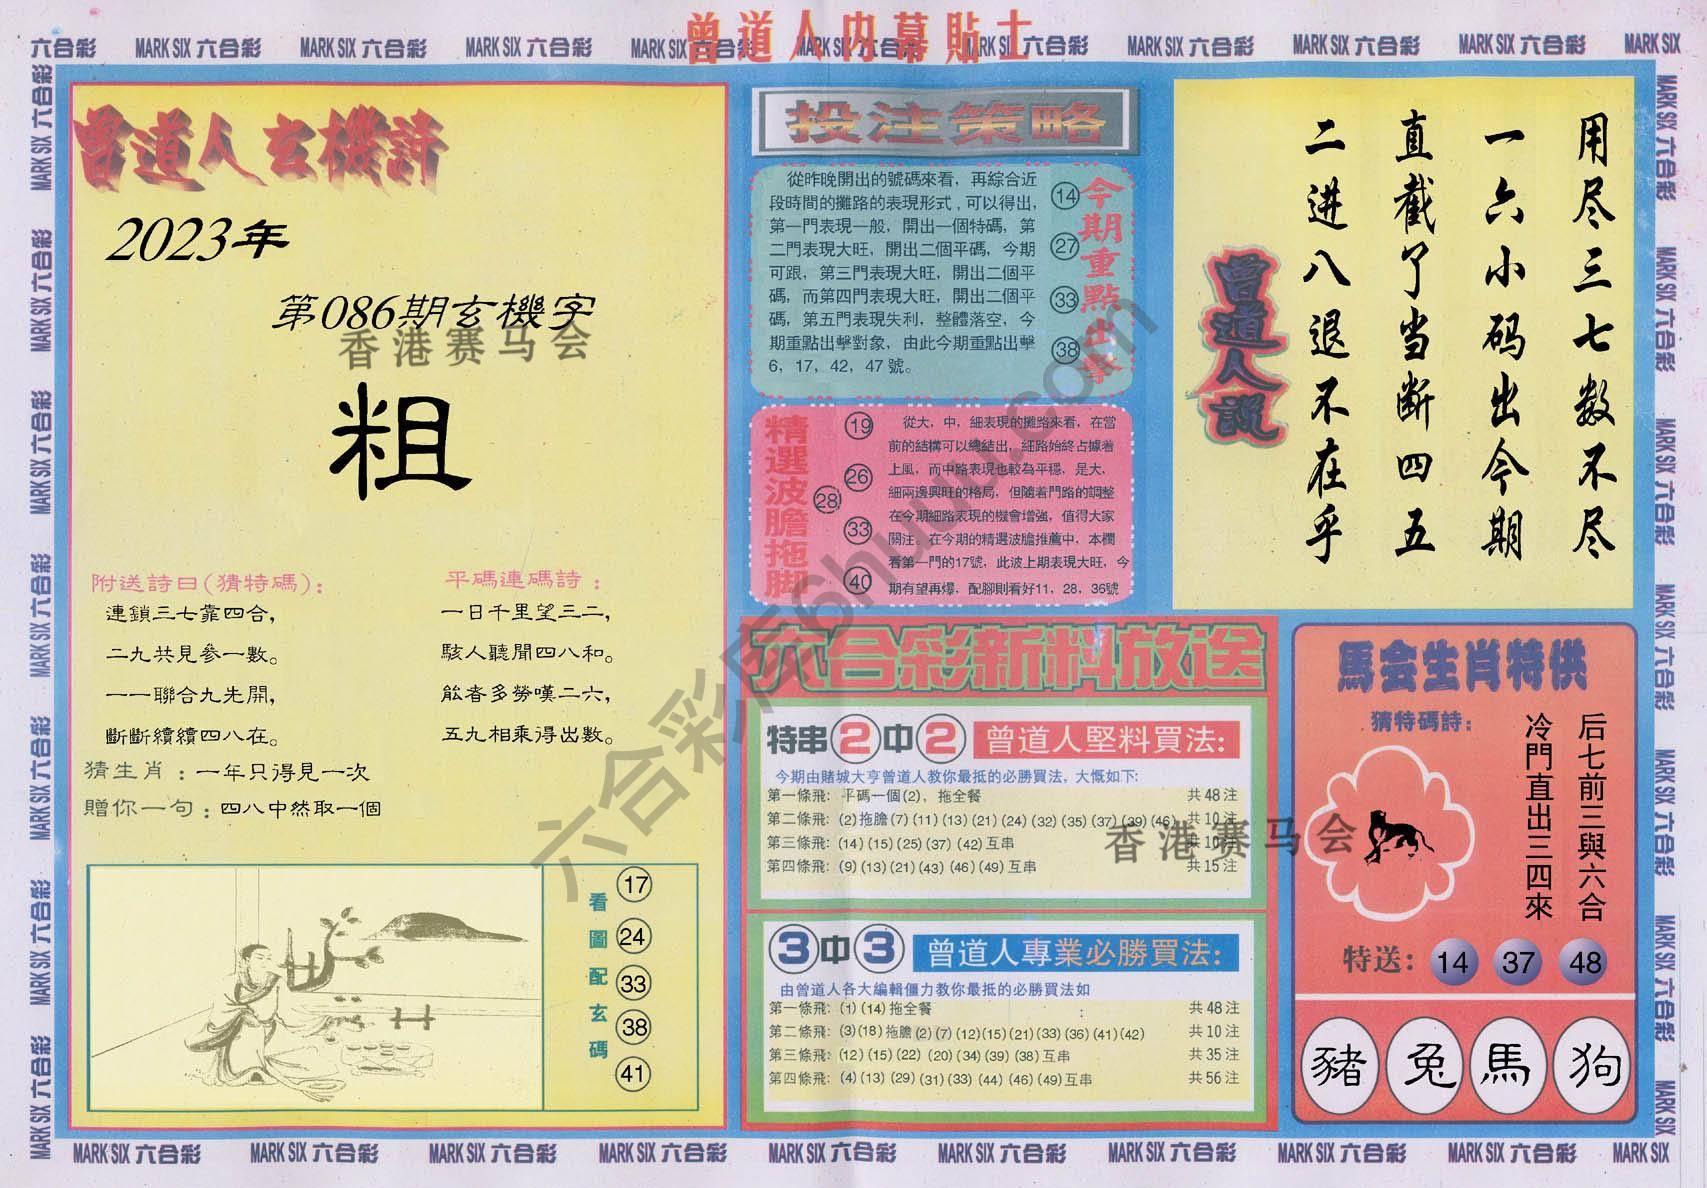 曾道人内幕貼士
六合彩 MARK SIX 六合彩 MARK SIX 六合彩 MARK SIX 六合彩 MARK SIX 六合彩 MARK SIX 六合彩 MARK SIX 六合彩 MARK SIX 六合彩 MARK SIX 六合彩 MARK SIX 六合彩 MARK SIX
曾道人玄機詩
2023年
第086期玄機字
香港赛马会
粗
附送詩曰(猜特碼):
連鎖三七靠四合,
二九共見參一數。
一一聯合九先開,
斷斷續續四八在。
平碼連碼詩:
一日千里望三二,
駭人聽聞四八和。
能者多勞嘆二六,
五九相乘得出數。
猜生肖:一年只得見一次
贈你一句:四八中然取一個
看圖配玄碼
17
24
33
38
41
投注策略
從昨晚開出的號碼來看,再綜合近
段時間的攤路的表現形式,可以得出,
第一門表現一般,開出一個特碼,第
二門表現大旺,開出二個平碼,今期
可跟,第三門表現大旺,開出二個平
碼,而第四門表現大旺,開出二個平
碼,第五門表現失利,整體落空,今
期重點出擊對象,由此今期重點出擊
6,17,42,47號。
14
27
33
38
今期重點出擊
精選波膽拖脚
19
26
28
33
40
從大,中,細表現的攤路來看,在當
前的結構可以總結出,細路始終占據着
上風,而中路表現也較為平穩,是大,
細兩邊興旺的格局,但隨着門路的調整
在今期細路表現的機會增強,值得大家
關注。在今期的精選波膽推薦中,本欄
看第一門的17號,此波上期表現大旺,今
期有望再爆,配腳則看好11,28,36號
曾道人說
用尽三七数不尽
一六小码出今期
直截了当断四五
二进八退不在乎
六合彩新料放送
特串2中2 曾道人堅料買法:
今期由賭城大亨曾道人教你最抵的必勝買法,大慨如下:
第一條飛: 平碼一個(2),拖全餐 共48注
第二條飛: (2)拖膽(7)(11)(13)(21)(24)(32)(35)(37)(39)(46) 共10注
第三條飛: (14)(15)(25)(37)(42)互串 共10注
第四條飛: (9)(13)(21)(43)(46)(49)互串 共15注
香港赛马会
3中3 曾道人專業必勝買法:
由曾道人各大編輯僵力教你最抵的必勝買法如
第一條飛: (1)(14)拖全餐 : 共48注
第二條飛: (3)(18)拖膽(2)(7)(12)(15)(21)(33)(36)(41)(42) 共10注
第三條飛: (12)(15)(22)(20)(34)(39)(38)互串 共35注
第四條飛: (4)(13)(29)(31)(33)(44)(46)(49)互串 共56注
馬会生肖特供
猜特碼詩:
后七前三與六合
冷門直出三四來
特送: 14 37 48
豬 兔 馬 狗
六合彩库6huuu.com
MARK SIX 六合彩 MARK SIX 六合彩 MARK SIX 六合彩 MARK SIX 六合彩 MARK SIX 六合彩 MARK SIX 六合彩 MARK SIX 六合彩 MARK SIX 六合彩 MARK SIX 六合彩 MARK SIX